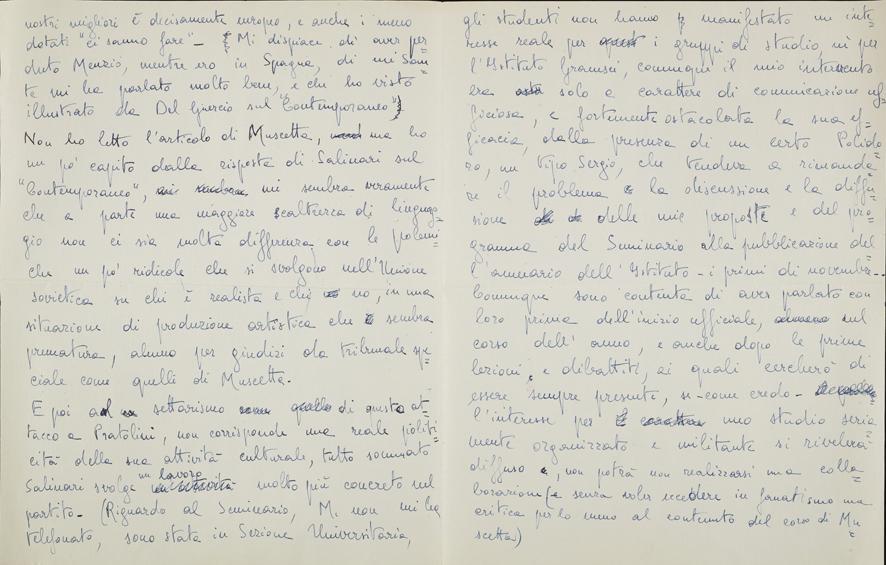 nostri migliori è decisamente europeo, e anche i meno
dotati "ci sanno fare" - Mi dispiace di aver per=
duto Menzio, mentre ero in Spagna, di cui San
te mi ha parlato molto bene, e che ho visto
illustrato da Del Guercio sul "Contemporaneo")
Non ho letto l'articolo di Muscetta, ma ho
un po' capito dalla risposta di Salinari sul
"Contemporaneo", mi sembra veramente
che a parte una maggiore scaltrezza di linguag=
gio non ci sia molta differenza con le polemi=
che un po' ridicole che si svolgono nell'Unione
sovietica su chi è realista e chi no, in una
situazione di produzione artistica che sembra
prematura, almeno per giudizi da tribunale spe=
ciale come quelli di Muscetta.
E poi al settarismo di questo at=
tacco a Pratolini, non corrisponde una reale politi=
cità della sua attività culturale, tutto sommato
Salinari svolge un lavoro molto più concreto sul
partito - (Riguardo al Seminario, M. non mi ha
telefonato, sono stata in Sezione Universitaria,
gli studenti non hanno manifestato un inte=
resse reale per i gruppi di studio, nè per
l'Istituto Gramsci, comunque il mio intervento
era solo a carattere di comunicazione uf=
ficiosa, e fortemente ostacolata la sua ef=
ficacia, dalla presenza di un certo Polido=
ro, un tipo Sergio, che tendeva a rimanda=
re il problema la discussione e la diffu=
sione delle mie proposte e del pro=
gramma del Seminario alla pubblicazione del
l'annuario dell'Istituto - i primi di novembre -
Comunque sono contenta di aver parlato con
loro prima dell'inizio ufficiale, sul
corso dell'anno, e anche dopo le prime
lezioni, e dibattiti, ai quali cercherò di
essere sempre presente, se - come credo -
l'interesse per uno studio seria=
mente organizzato e militante si rivelerà
diffuso, non potrà non realizzarsi una colla=
borazione (e senza voler eccedere in fanatismo una
critica per lo meno al contenuto del corso di Mu=
scetta)